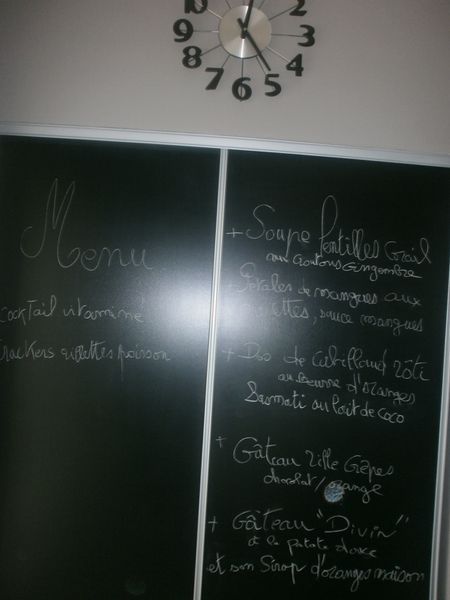 10 2
9 3
8 4
7 6 5
Menu
Cocktail vitaminé
Crackers rillettes poisson
+ Soupe lentilles Corail
aux croutons Gingembre
+ Pétales de mangues aux
, sauce mangues
+ Dos de Cabillaud rôti
au beurre d'oranges
Basmati au lait de coco
+ Gâteau Mille Crêpes
chocolat // orange
+ Gâteau "Divin"
à la patate douce
et son Sirop d'oranges maison